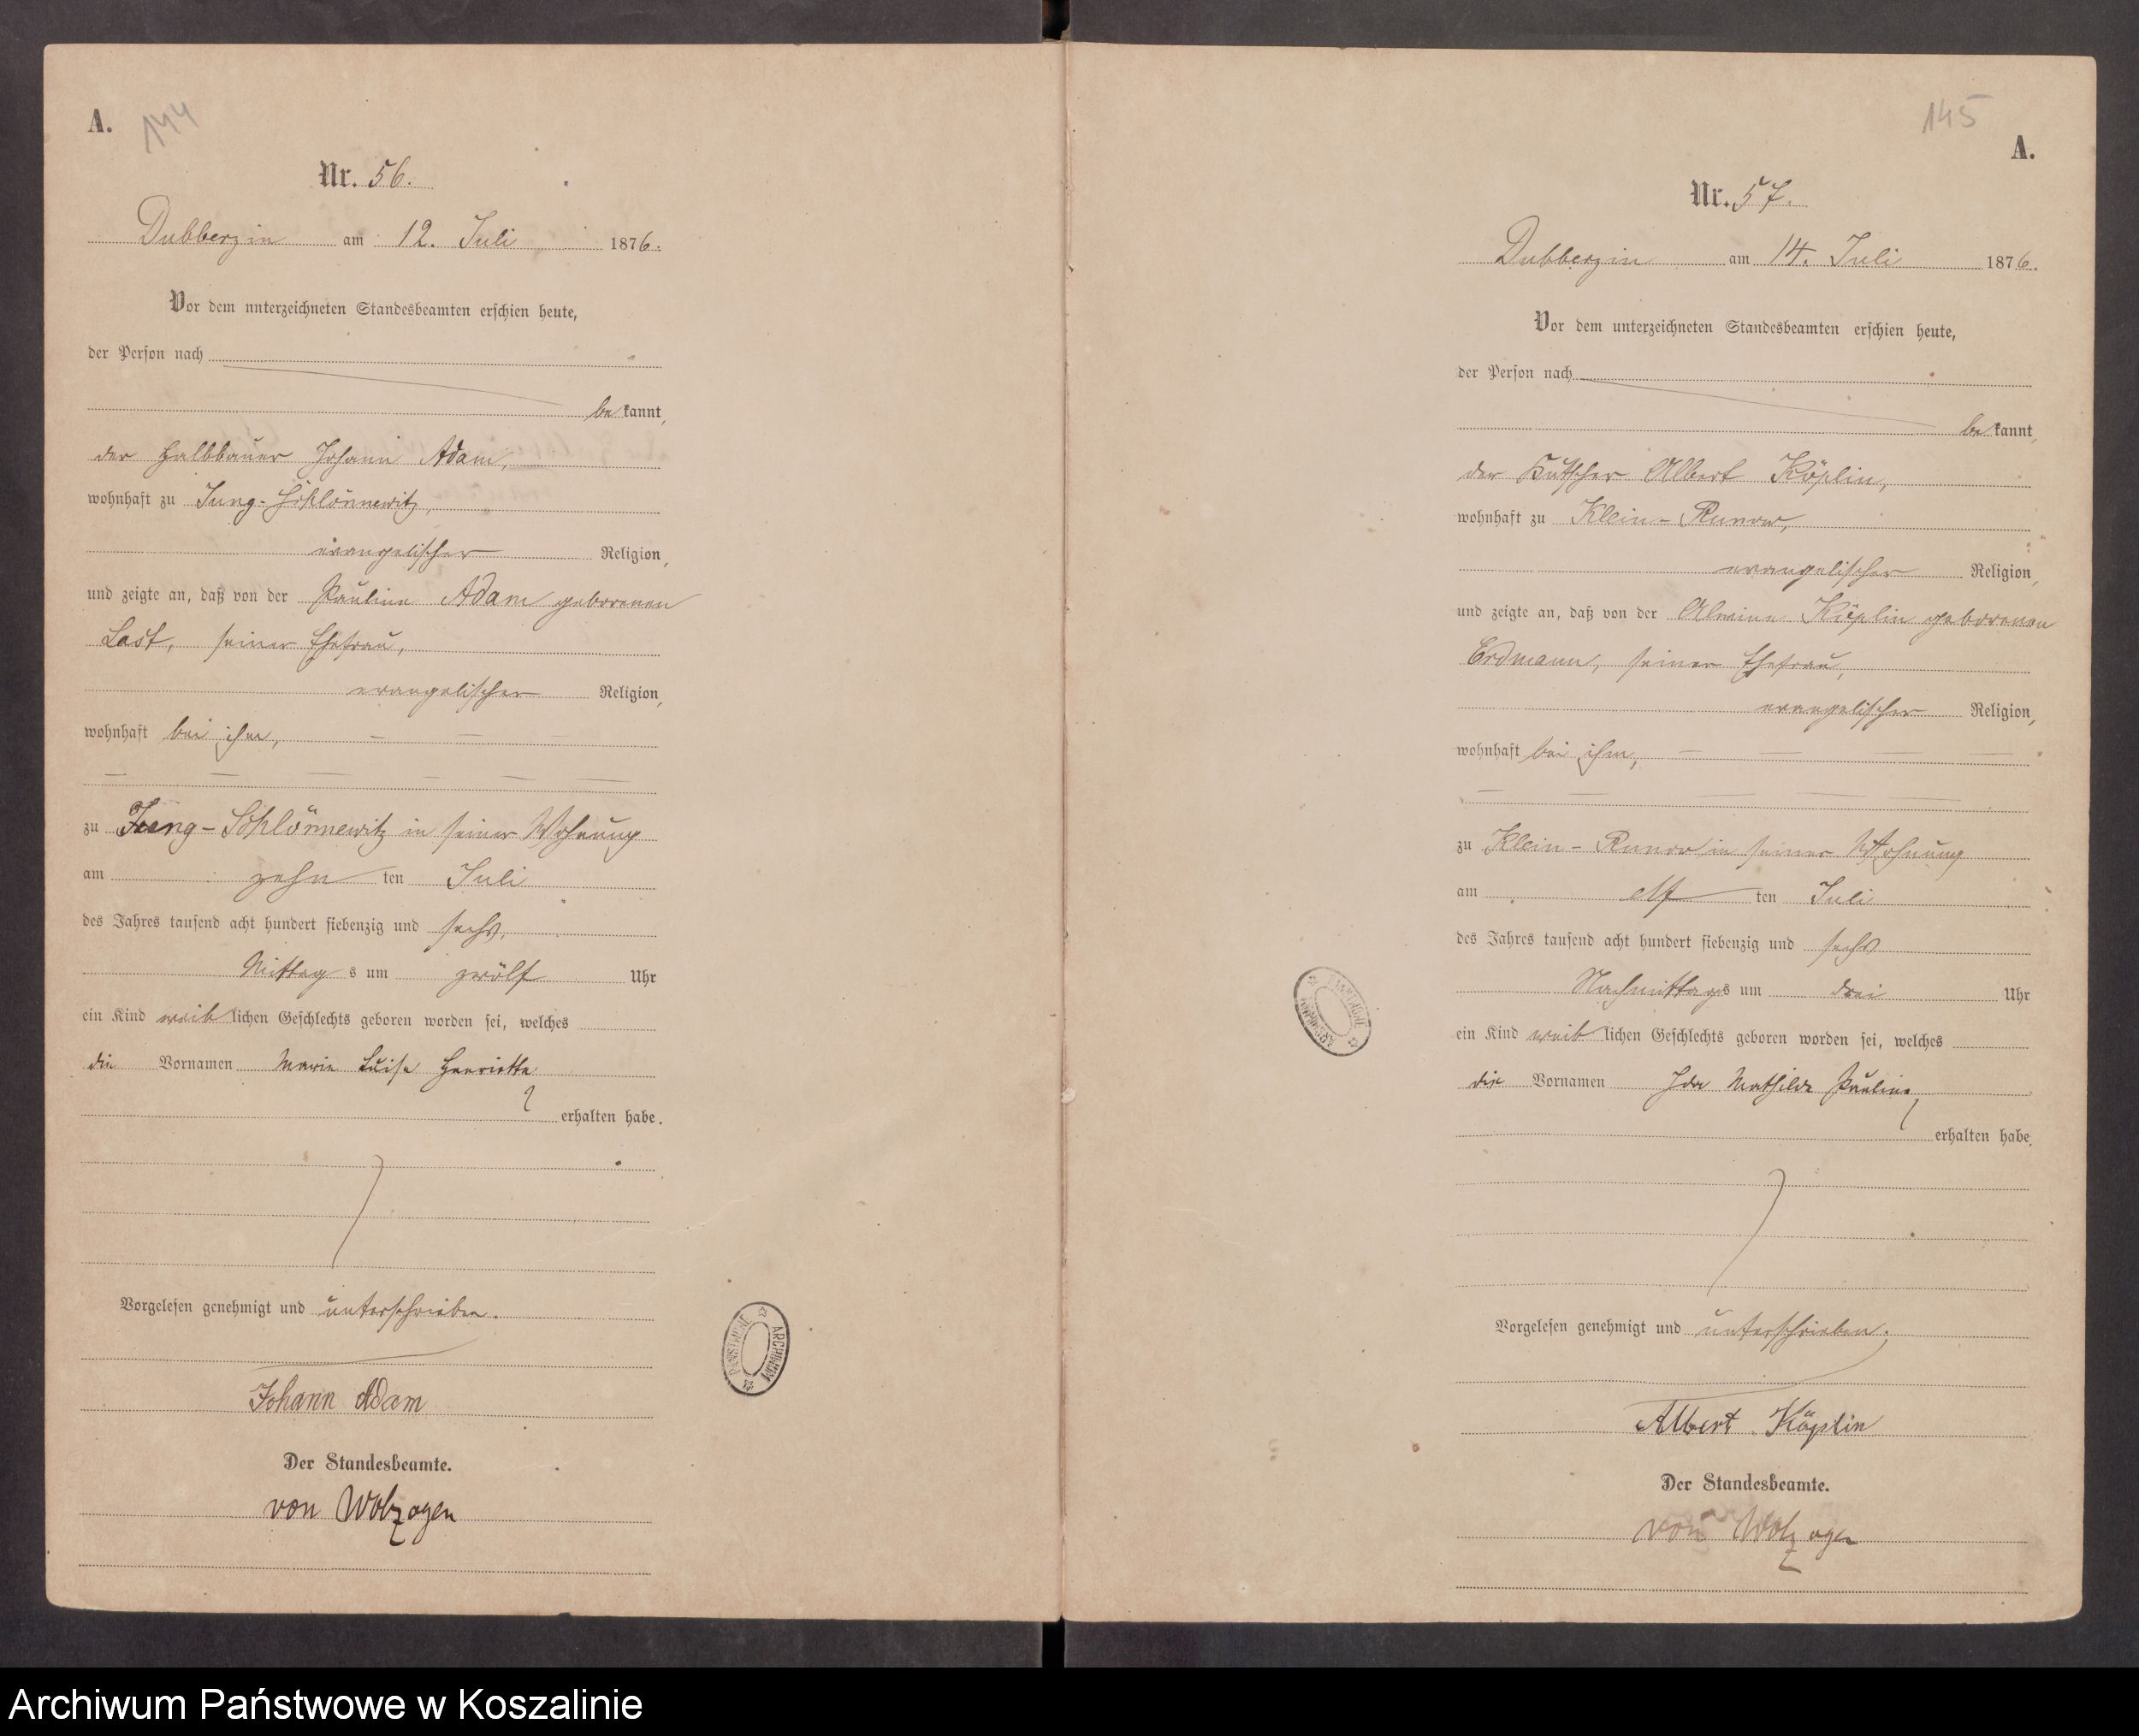 A. 144
Nr. 56.
Dubberzin am 12. Juli 1876.
Vor dem nnterzeichneten Standesbeamten erschien heute,
der Person nach
be kannt,
der Halbbauer Johann Adam,
wohnhaft zu Jung-Schlönnewitz,
evangelischer Religion,
und zeigte an, daß von der Pauline Adam geborenen
Last, seiner Ehefrau,
evangelischer Religion,
wohnhaft bei ihm,
zu Jung-Schlönnewitz in seiner Wohnung
am zehn ten Juli
des Jahres tausend acht hundert siebenzig und sechs,
Mittag s um zwölf Uhr
ein Kind weib lichen Geschlechts geboren worden sei, welches
die Vornamen Marie Luise Henriette
erhalten habe.
Vorgelesen genehmigt und unterschrieben.
Johann Adam
Der Standesbeamte.
von Wolzogen
PAŃSTWOWE ARCHIWUM
145
A.
Nr. 57.
Dubberzin am 14. Juli 1876.
Vor dem unterzeichneten Standesbeamten erschien heute,
der Person nach
be kannt,
der Kutscher Albert Köplin,
wohnhaft zu Klein-Runow,
evangelischer Religion,
und zeigte an, daß von der Alwine Köplin geborenen
Erdmann, seiner Ehefrau,
evangelischer Religion,
wohnhaft bei ihm,
zu Klein-Runow in seiner Wohnung
am elf ten Juli
des Jahres tausend acht hundert siebenzig und sechs
Nachmittags um drei Uhr
ein Kind weib lichen Geschlechts geboren worden sei, welches
die Vornamen Ida Mathilde Pauline,
erhalten habe.
Vorgelesen genehmigt und unterschrieben.
Albert Köplin
Der Standesbeamte.
von Wolzogen
PAŃSTWOWE ARCHIWUM
Archiwum Państwowe w Koszalinie